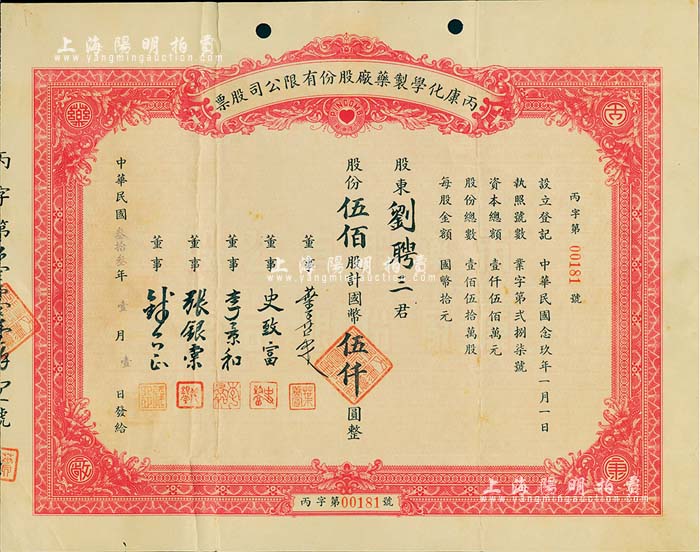 上海陽明拍賣
www.yangmingauction.com
丙康化學製藥廠股份有限公司股票
丙字第00181號
設立登記 中華民國念玖年一月一日
執照號數 業字第弍捌柒號
資本總額 壹仟伍佰萬元
股份總數 壹佰伍拾萬股
每股金額 國幣拾元
股東 劉聘三君
股份伍佰股計國幣伍仟圓整
董事
董事 史致富
董事 李景和
董事 張銀棠
董事
中華民國叁拾叁年壹月壹日發給
丙字第00181號
上海陽明拍賣
www.yangmingauction.com
上海陽明拍賣
www.yangmingauction.com